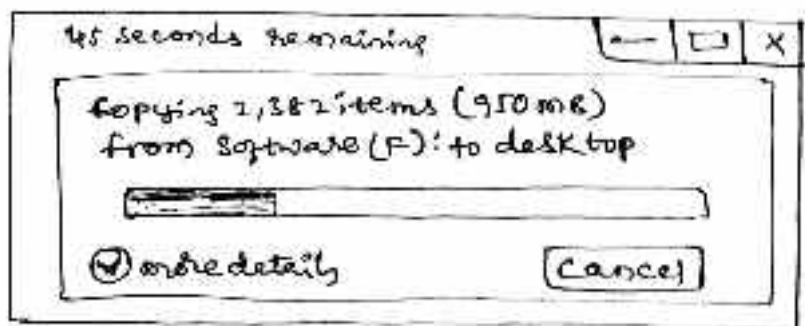 45 seconds remaining
Copying 2,382 items (950 MB)
from Software (F): to desktop
more details
Cancel